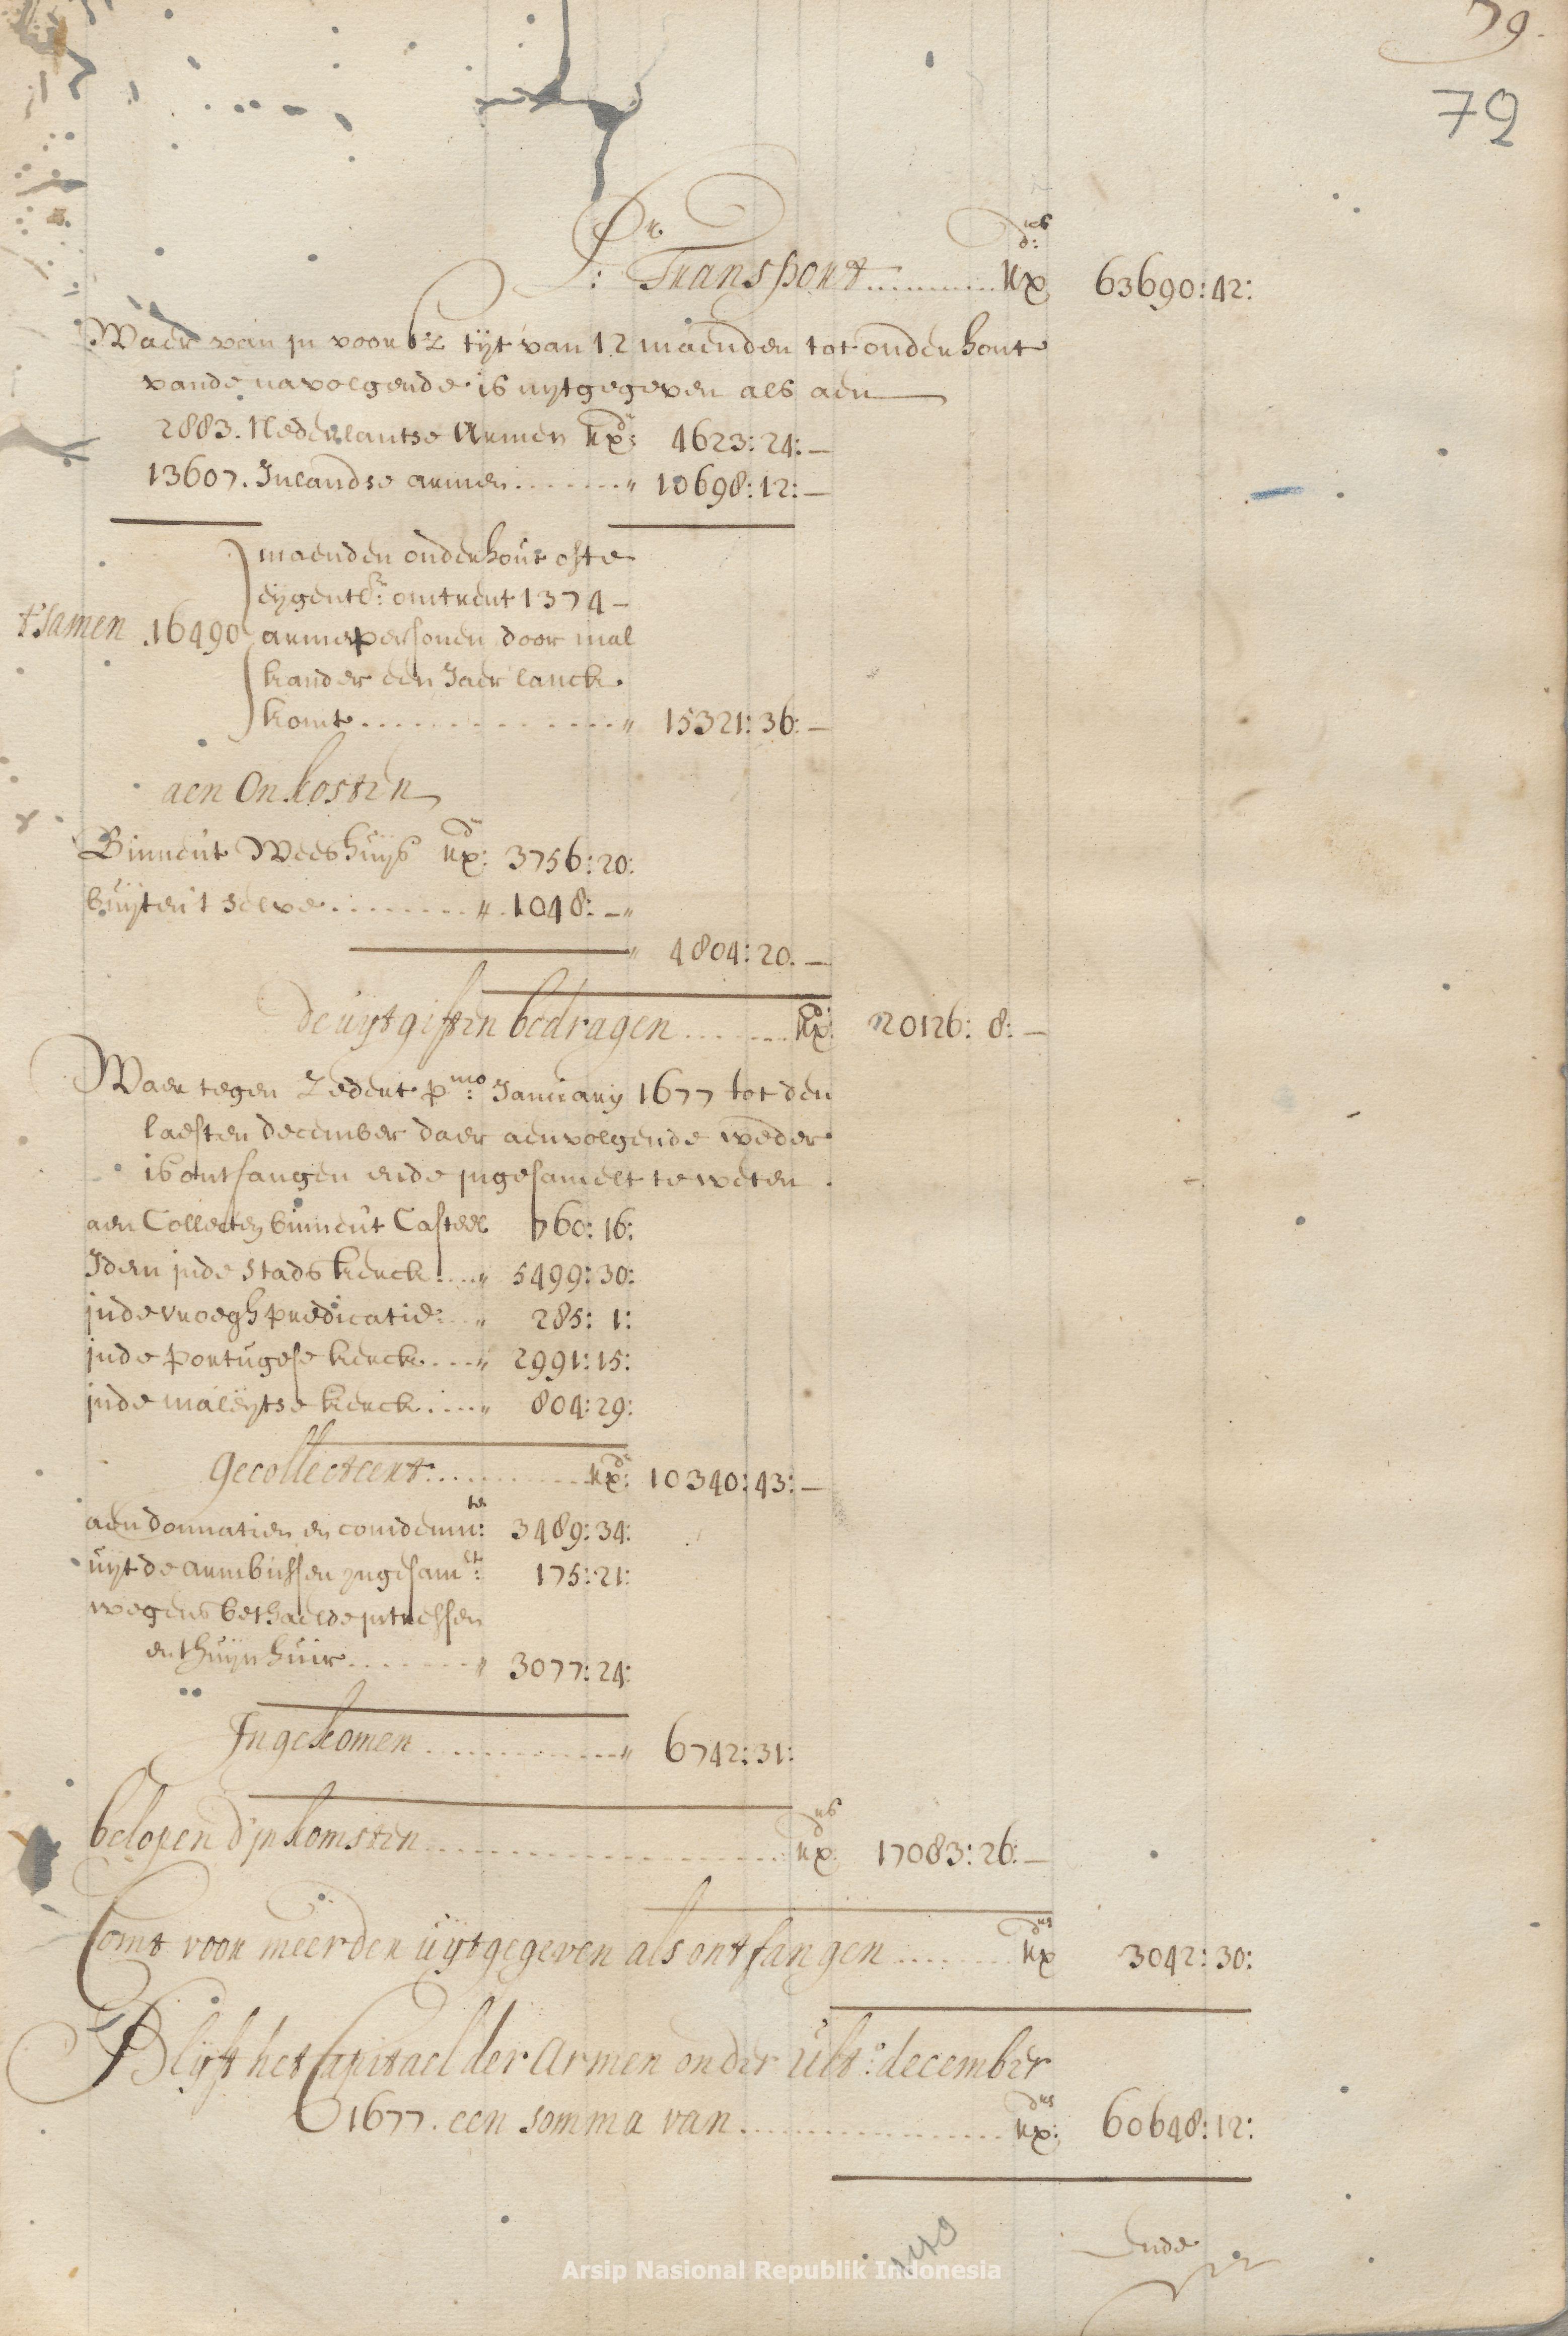 79.
72
Pr. Transport ............ Rx ds 63690:42:
Waer van in voorsz tijt van 12 maenden tot onderhout
vande navolgende is uytgegeven als aen
2883. Nederlantse Armen Rxd: 4623:24:—
13607. Inlandse armen ........ " 10698:12:—
maenden onderhout ofte
eijgentlr: omtrent 1374 —
t'samen 16490 armepersonen door mal
kander een Jaer lanck
komt .............. " 15321:36:—
aen Onkosten
Binnen't Weeshuijs Rxd: 3756:20:
buijten 't selve ......... " 1048:—"
" 4804:20.—
de uijtgiften bedragen ....... Rxd: 20126: 8:—
Waer tegen zedert pmo: January 1677 tot den
laesten december daer aenvolgende weder
is ontfangen ende ingesamelt te weten.
aen Collecten binnen't Casteel 760:16:
Idem inde Stads kerck .... " 5499:30:
inde vroegh predicatie: .. " 285: 1:
inde portugese kerck .... " 2991:15:
inde maleijtse kerck .... " 804:29:
Gecollecteert: .......... Rxd: 10340:43:—
aen donnatien en condemnten: 3489:34:
uijt de armbussen ingesamlt: 175:21:
wegens bethaelde intressen
en thuijn huir ........ " 3077:24:
Ingekomen ............ " 6742:31:
belopen d'inkomsten .................. Rx ds 17083:26:—
Comt voor meerder uijtgegeven als ontfangen ....... Rx ds 3042:30:
Blijft het Capitael der Armen onder ulto: december
1677. een somma van ............... Rx ds: 60648:12:
Ende
Arsip Nasional Republik Indonesia